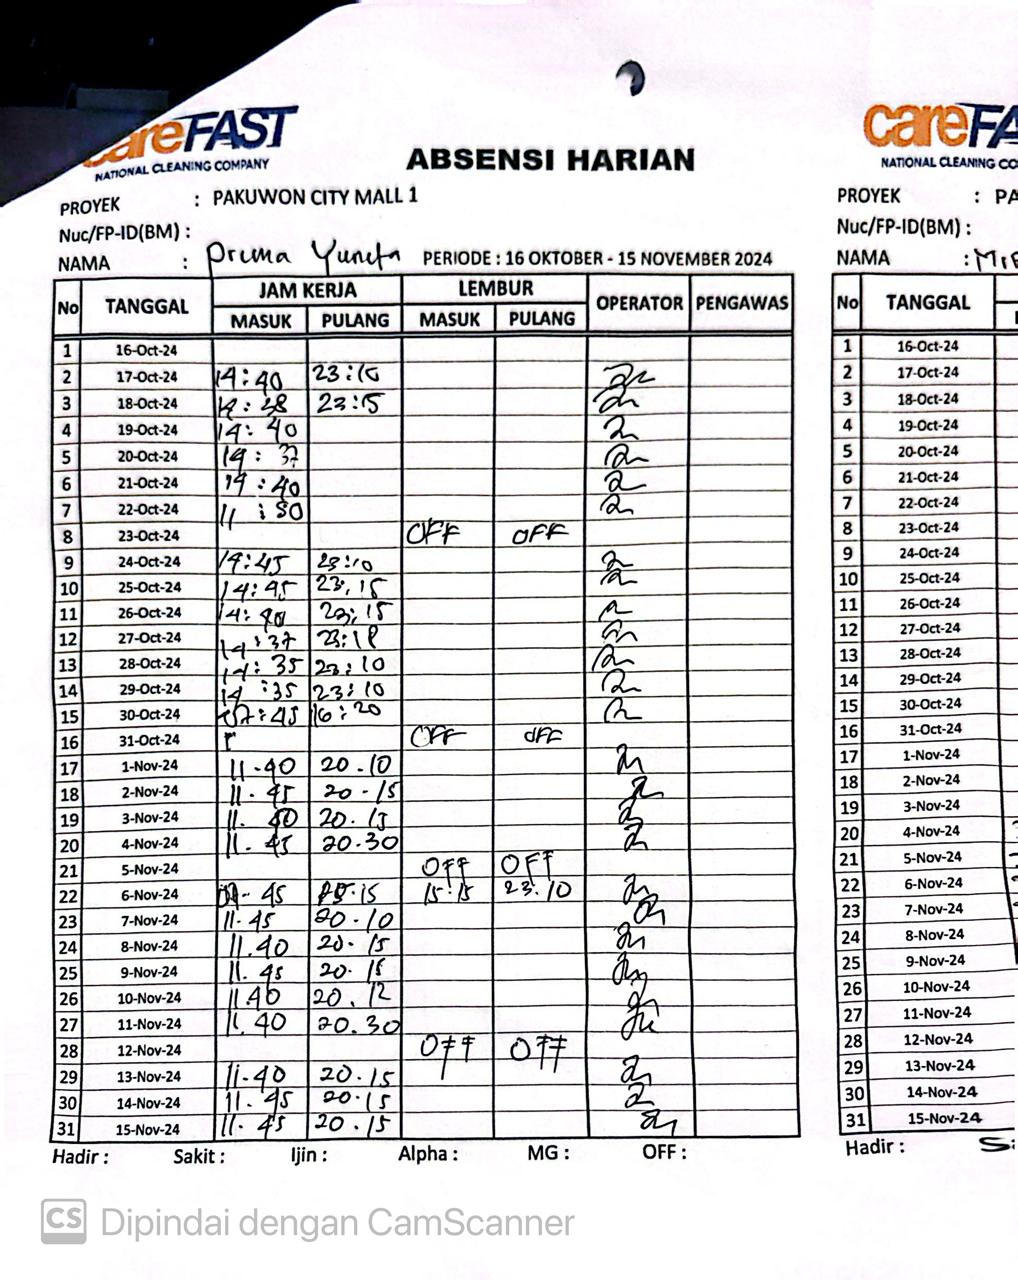 careFAST
NATIONAL CLEANING COMPANY
ABSENSI HARIAN
PROYEK : PAKUWON CITY MALL 1
Nuc/FP-ID(BM) :
NAMA : Prima Yuneta PERIODE : 16 OKTOBER - 15 NOVEMBER 2024
No TANGGAL JAM KERJA LEMBUR OPERATOR PENGAWAS
MASUK PULANG MASUK PULANG
1 16-Oct-24
2 17-Oct-24 14:40 23:10
3 18-Oct-24 14:38 23:15
4 19-Oct-24 14:40
5 20-Oct-24 14:37
6 21-Oct-24 14:40
7 22-Oct-24 11:50
8 23-Oct-24 OFF OFF
9 24-Oct-24 14:45 23:10
10 25-Oct-24 14:45 23,15
11 26-Oct-24 14:40 23;15
12 27-Oct-24 14:37 23:18
13 28-Oct-24 14:35 23:10
14 29-Oct-24 14:35 23:10
15 30-Oct-24 07:45 16:20
16 31-Oct-24 OFF OFF
17 1-Nov-24 11.40 20.10
18 2-Nov-24 11.45 20-15
19 3-Nov-24 11.40 20.15
20 4-Nov-24 11.45 20.30
21 5-Nov-24 OFF OFF
22 6-Nov-24 45 15 15.15 23.10
23 7-Nov-24 11.45 20.10
24 8-Nov-24 11.40 20.15
25 9-Nov-24 11.45 20.15
26 10-Nov-24 11.40 20.12
27 11-Nov-24 11.40 20.30
28 12-Nov-24 OFF OFF
29 13-Nov-24 11.40 20.15
30 14-Nov-24 11.45 20.15
31 15-Nov-24 11.45 20.15
Hadir : Sakit : Ijin : Alpha : MG : OFF :
careFA
NATIONAL CLEANING CO
PROYEK : PA
Nuc/FP-ID(BM) :
NAMA :
No TANGGAL
1 16-Oct-24
2 17-Oct-24
3 18-Oct-24
4 19-Oct-24
5 20-Oct-24
6 21-Oct-24
7 22-Oct-24
8 23-Oct-24
9 24-Oct-24
10 25-Oct-24
11 26-Oct-24
12 27-Oct-24
13 28-Oct-24
14 29-Oct-24
15 30-Oct-24
16 31-Oct-24
17 1-Nov-24
18 2-Nov-24
19 3-Nov-24
20 4-Nov-24
21 5-Nov-24
22 6-Nov-24
23 7-Nov-24
24 8-Nov-24
25 9-Nov-24
26 10-Nov-24
27 11-Nov-24
28 12-Nov-24
29 13-Nov-24
30 14-Nov-24
31 15-Nov-24
Hadir :
CS Dipindai dengan CamScanner